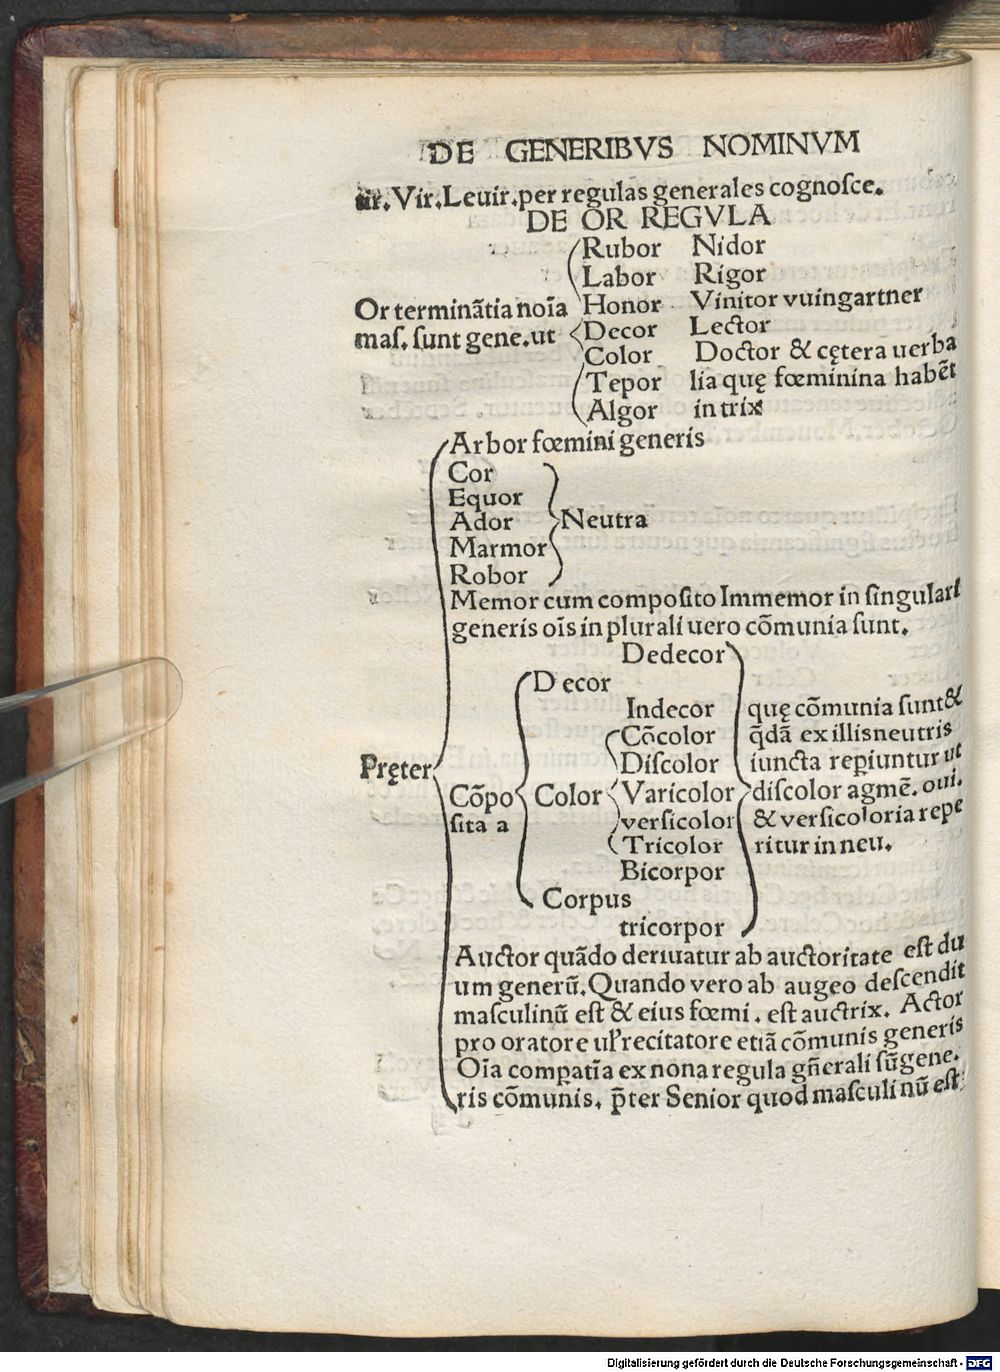 DE GENERIBVS NOMINVM
ir.Vir.Leuir.per regulas generales cognoſce.
DE OR REGVLA
Rubor Nidor
Labor Rigor
Or terminãtia noĩa Honor Vinitor vuingartner
maſ. ſunt gene.ut Decor Lector
Color Doctor & cętera uerba
Tepor lia quę fœminina habẽt
Algor in trix
Arbor fœmini generis
Cor
Equor
Ador Neutra
Marmor
Robor
Memor cum compoſito Immemor in ſingulari
generis oĩs in plurali uero cõmunia ſunt.
Dedecor
Decor
Indecor quę cõmunia ſunt &
Cõcolor q̃dã ex illis neutris
Pręter Diſcolor iuncta reꝑiuntur ut
Cõpo Color Varicolor diſcolor agmẽ. oui.
ſita a verſicolor & verſicoloria repe
Tricolor ritur in neu.
Bicorpor
Corpus
tricorpor
Auctor quãdo deriuatur ab auctoritate eſt du
um generũ. Quando vero ab augeo deſcendit
maſculinũ eſt & eius fœmi. eſt auctrix. Actor
pro oratore ul̛ recitatore etiã cõmunis generis
Oĩa comꝑatĩa ex nona regula gñerali ſũ gene.
ris cõmunis. p̃ter Senior quod maſculinũ eſt.
Digitalisierung gefördert durch die Deutsche Forschungsgemeinschaft - DFG